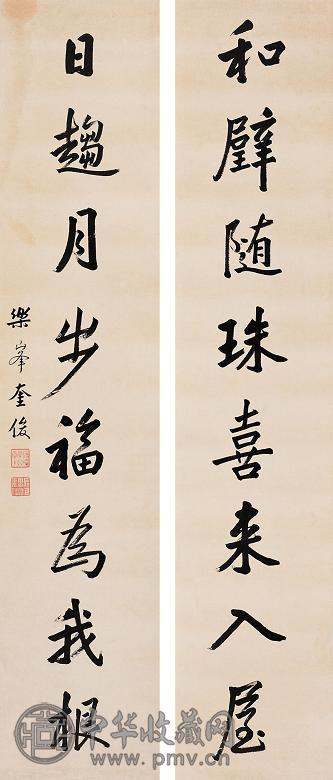 和璧随珠喜来入屋
日趨月步福為我
樂峯奎俊
中华收藏网
www.pmv.cn